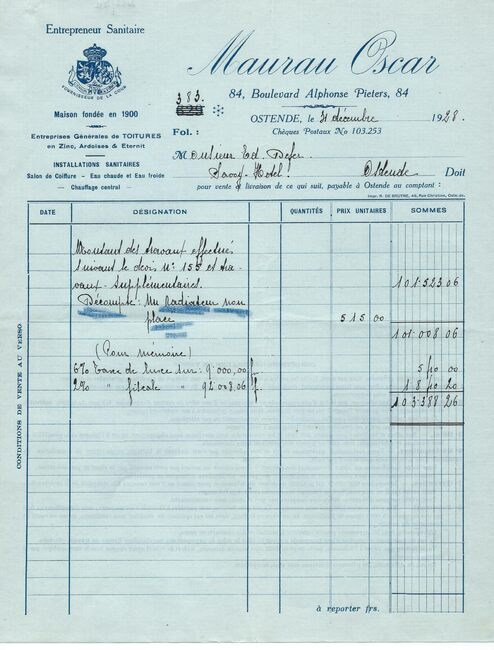 Entrepreneur Sanitaire
FOURNISSEUR DE LA COUR
Maison fondée en 1900
Entreprises Générales de TOITURES
en Zinc, Ardoises & Eternit
INSTALLATIONS SANITAIRES
Salon de Coiffure - Eau chaude et Eau froide
— Chauffage central —
Maurau Oscar
84, Boulevard Alphonse Pieters, 84
383.
OSTENDE, le 31 décembre 1928.
Fol. :
Chèques Postaux No 103.253
Monsieur Ed.
Savoy-Hotel. Ostende Doit
pour vente et livraison de ce qui suit, payable à Ostende au comptant :
Impr. R. DE BRUYNE, Rue Christine, Ostende
DATE DÉSIGNATION QUANTITÉS PRIX UNITAIRES SOMMES
Montant des travaux effectués
suivant le devis n° 155 et tra-
vaux supplémentaires. 101.523 06
Décompte: Un radiateur non
placé 515 00
101.008 06
(Pour mémoire)
6% Taxe de luxe sur: 9.000,00 f. 540 00
2% " " 92.008.06 f. 1840 20
103.388 26
CONDITIONS DE VENTE AU VERSO
à reporter frs.